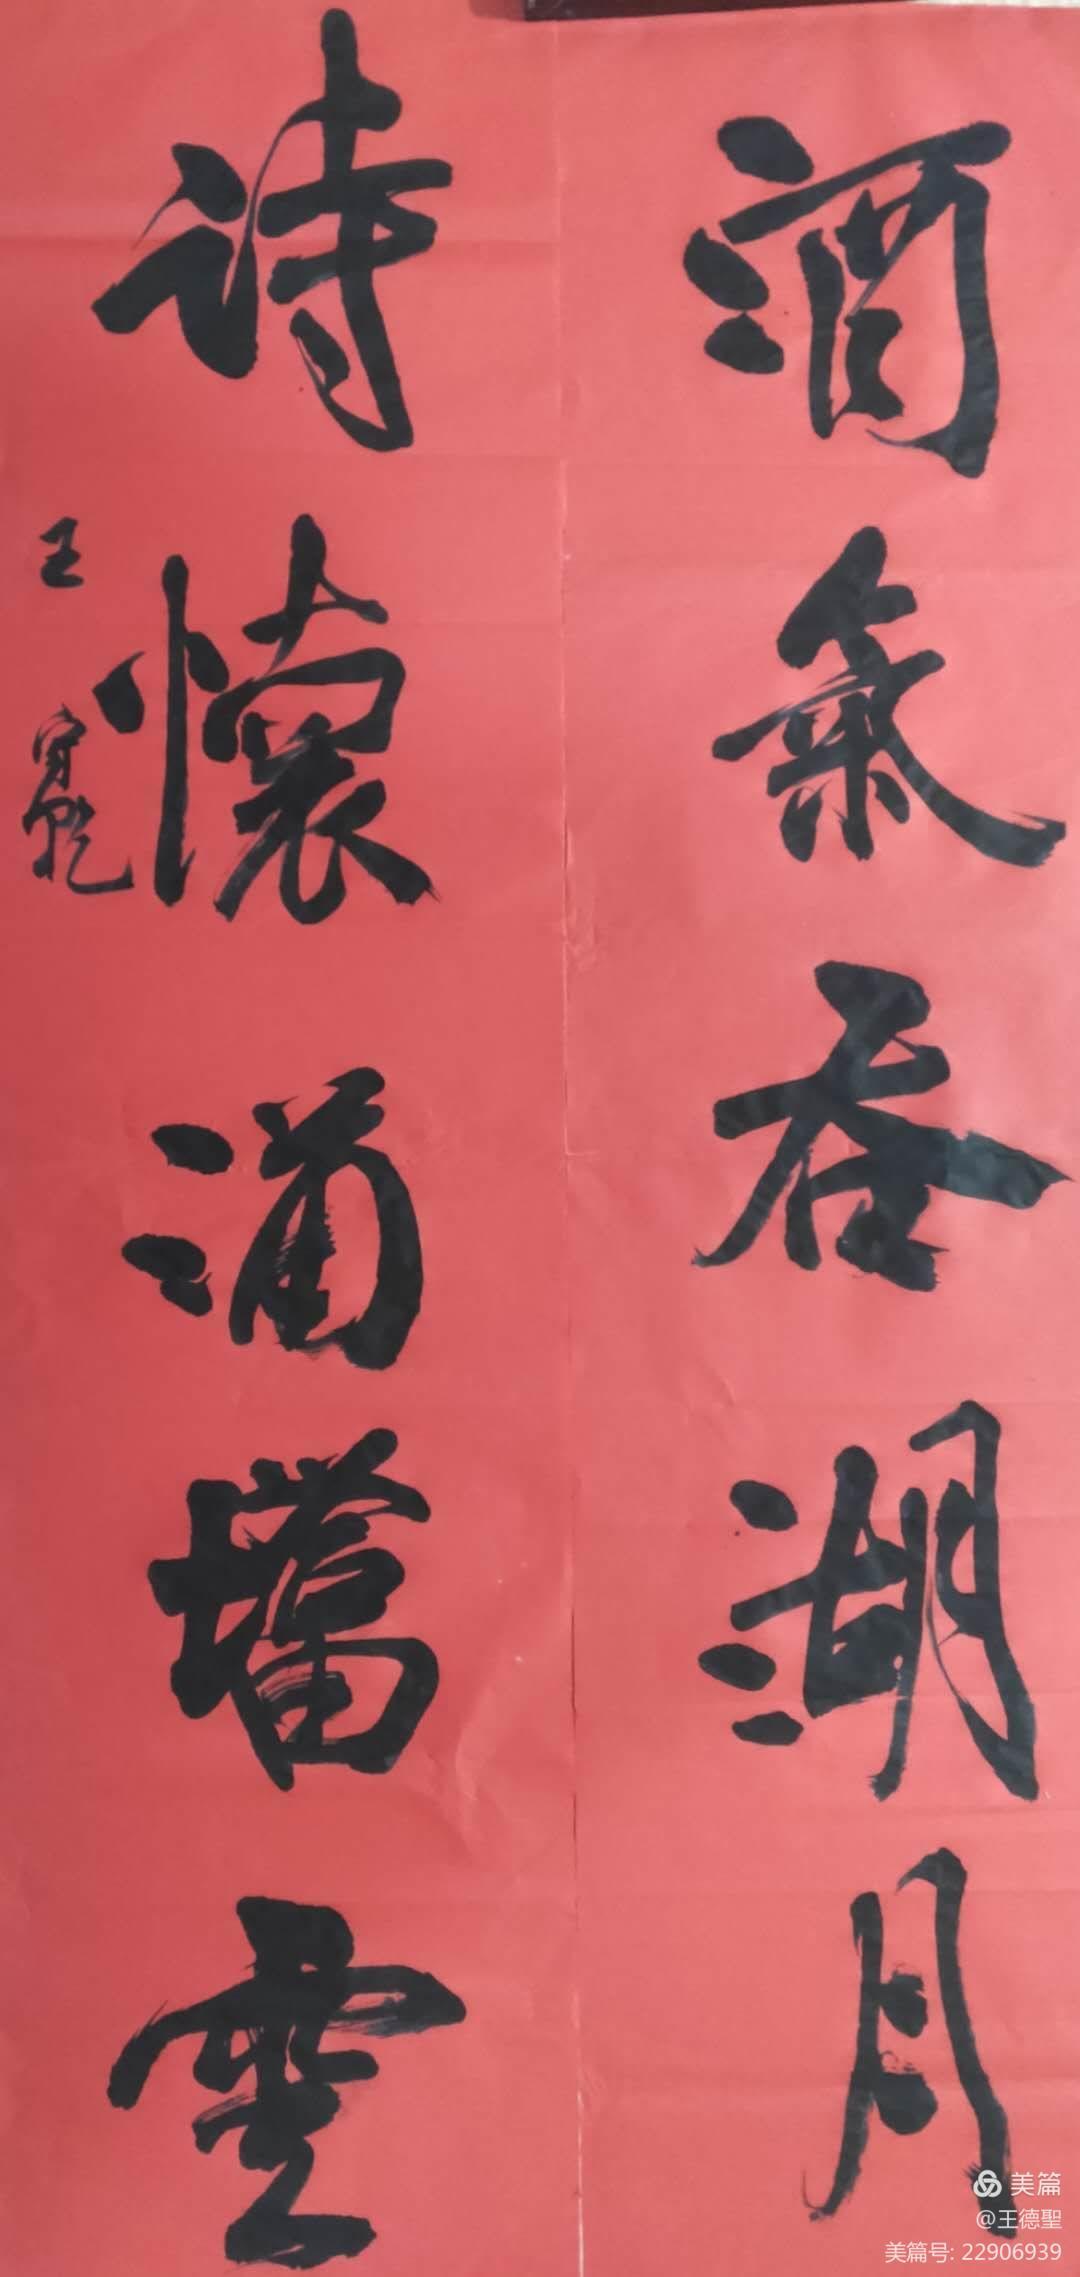 酒氣吞湖月
诗懷涌雲
王
美篇
@王德聖
美篇号: 22906939